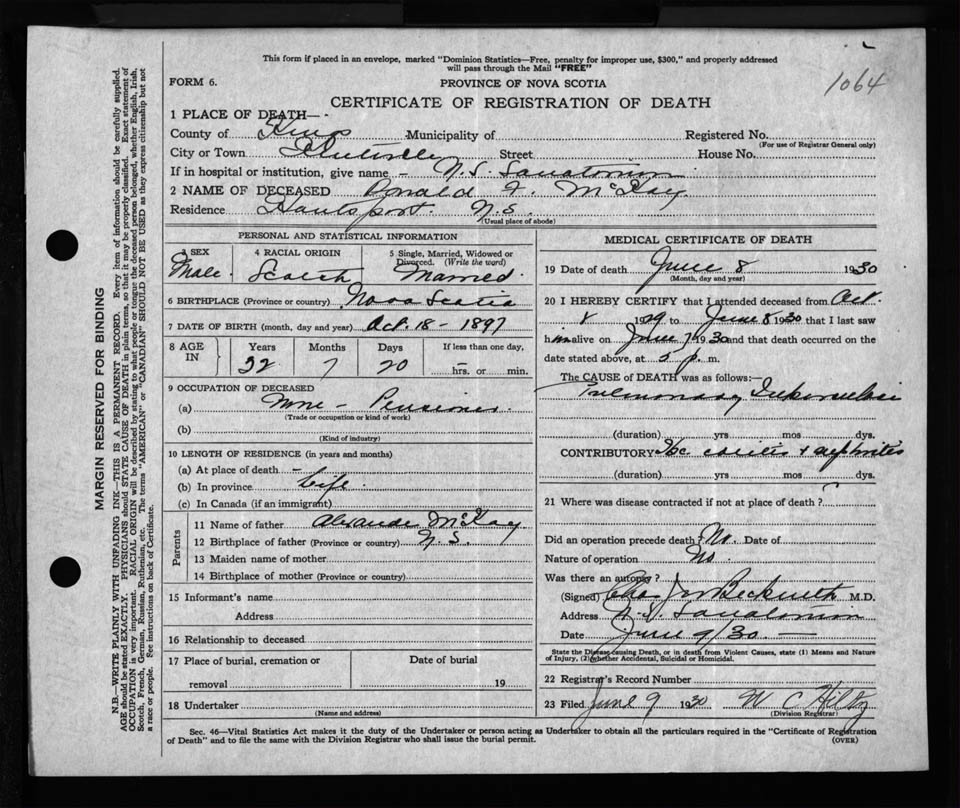 This form if placed in an envelope, marked "Dominion Statistics—Free, penalty for improper use, $300," and properly addressed
will pass through the Mail "FREE"
1064
FORM 6.
PROVINCE OF NOVA SCOTIA
CERTIFICATE OF REGISTRATION OF DEATH
1 PLACE OF DEATH—
County of Kings Municipality of Registered No.
(For use of Registrar General only)
City or Town Street House No.
If in hospital or institution, give name – N.S. Sanatorium
2 NAME OF DECEASED Donald F. McKay
Residence Hantsport. N.S.
(Usual place of abode)
PERSONAL AND STATISTICAL INFORMATION
3 SEX Male. 4 RACIAL ORIGIN Scotch 5 Single, Married, Widowed or Divorced. (Write the word) Married.
6 BIRTHPLACE (Province or country) Nova Scotia
7 DATE OF BIRTH (month, day and year) Oct. 18 – 1897
8 AGE IN Years Months Days If less than one day,
32 7 20 hrs. or min.
9 OCCUPATION OF DECEASED
(a) None – Pensioner.
(Trade or occupation or kind of work)
(b)
(Kind of industry)
10 LENGTH OF RESIDENCE (in years and months)
(a) At place of death –
(b) In province Life.
(c) In Canada (if an immigrant)
Parents
11 Name of father Alexander McKay
12 Birthplace of father (Province or country) N.S.
13 Maiden name of mother
14 Birthplace of mother (Province or country)
15 Informant's name
Address
16 Relationship to deceased
17 Place of burial, cremation or Date of burial
removal 19
18 Undertaker
(Name and address)
MEDICAL CERTIFICATE OF DEATH
19 Date of death June 8 1930
(Month, day and year)
20 I HEREBY CERTIFY that I attended deceased from Oct.
8 1929 to June 8 1930 that I last saw
him alive on June 7 1930 and that death occurred on the
date stated above, at 5 p. m.
The CAUSE of DEATH was as follows:
Pulmonary Tuberculosis
(duration) yrs mos dys.
CONTRIBUTORY Tbc. + nephritis
(duration) yrs. mos. dys.
21 Where was disease contracted if not at place of death?
Did an operation precede death? No. Date of
Nature of operation No.
Was there an autopsy?
(Signed) Chas J. Beckwith M.D.
Address N.S. Sanatorium
Date June 9/30. —
State the Disease causing Death, or in death from Violent Causes, state (1) Means and Nature
of Injury, (2) whether Accidental, Suicidal or Homicidal.
22 Registrar's Record Number
23 Filed June 9 1930 W C Hiltz
(Division Registrar)
Sec. 46—Vital Statistics Act makes it the duty of the Undertaker or person acting as Undertaker to obtain all the particulars required in the "Certificate of Registration
of Death" and to file the same with the Division Registrar who shall issue the burial permit.
(OVER)
MARGIN RESERVED FOR BINDING
N.B.—WRITE PLAINLY WITH UNFADING INK—THIS IS A PERMANENT RECORD. Every item of information should be carefully supplied.
AGE should be stated EXACTLY. PHYSICIANS should STATE CAUSE OF DEATH in plain terms, so that it may be properly classified. Exact statement of
OCCUPATION is very important. RACIAL ORIGIN will be described by stating to what people or tongue the deceased person belonged, whether English, Irish,
Scotch, French, German, Russian, Ruthenian, etc. The terms "AMERICAN" or "CANADIAN" SHOULD NOT BE USED as they express citizenship but not
a race or people. See instructions on back of Certificate.